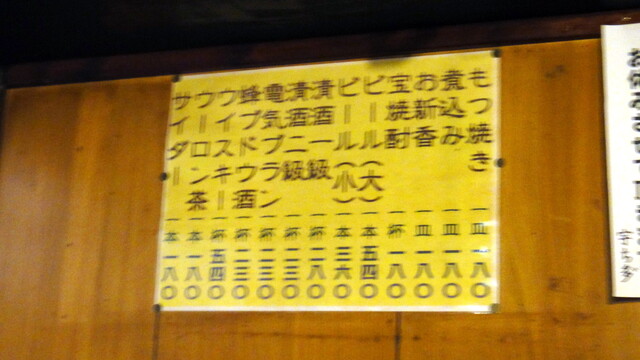 もつ焼き 一皿 一八〇
煮込み 一皿 一八〇
お新香 一皿 一八〇
宝焼酎 一杯 一八〇
ビール(大) 一本 五四〇
ビール(小) 一本 三六〇
清酒一級 一杯 二八〇
清酒二級 一杯 二三〇
電気ブラン 一杯 二三〇
蜂ブドウ酒 一杯 二三〇
ウイスキー 一杯 五四〇
ウーロン茶 一本 一八〇
サイダー 一本 一八〇
宇ち多